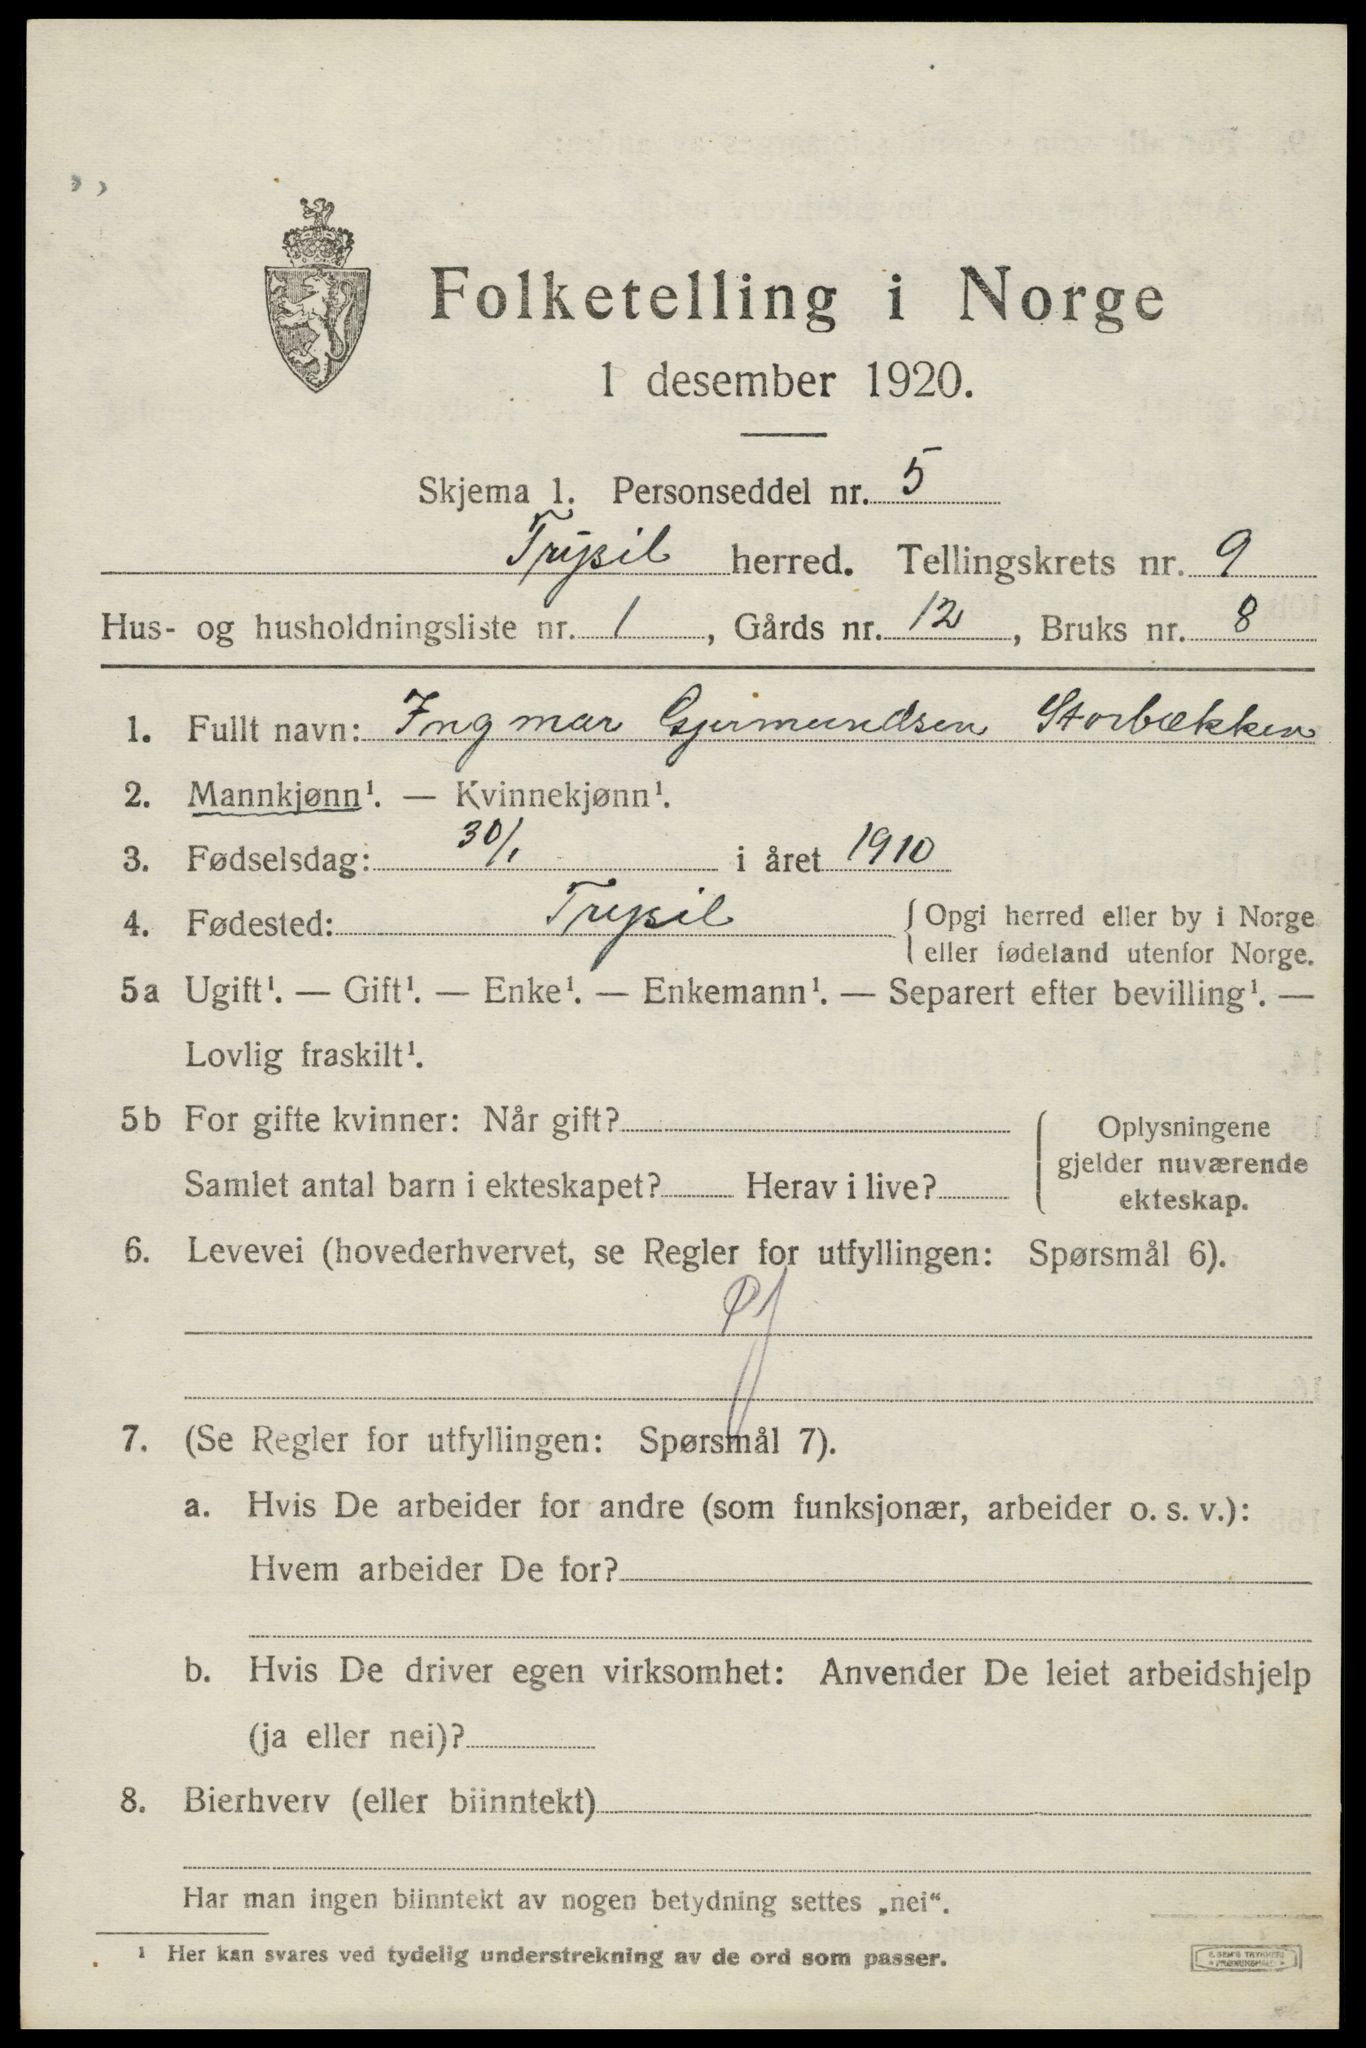 Folketelling i Norge
1 desember 1920.
Skjema 1. Personseddel nr. 5
Trysil herred. Tellingskrets nr. 9
Hus- og husholdningsliste nr. 1, Gårds nr. 12, Bruks nr. 8
1. Fullt navn: Ingmar Gjermundsen Storbækken
2. Mannkjønn¹. — Kvinnekjønn¹.
3. Fødselsdag: 30/1 i året 1910
4. Fødested: Trysil { Opgi herred eller by i Norge
eller fødeland utenfor Norge.
5a Ugift¹. — Gift¹. — Enke¹. — Enkemann¹. — Separert efter bevilling¹. —
Lovlig fraskilt¹.
5b For gifte kvinner: Når gift?
Samlet antal barn i ekteskapet? Herav i live?
Oplysningene
gjelder nuværende
ekteskap.
6. Levevei (hovederhvervet, se Regler for utfyllingen: Spørsmål 6).
7. (Se Regler for utfyllingen: Spørsmål 7).
a. Hvis De arbeider for andre (som funksjonær, arbeider o. s. v.):
Hvem arbeider De for?
b. Hvis De driver egen virksomhet: Anvender De leiet arbeidshjelp
(ja eller nei)?
8. Bierhverv (eller biinntekt)
Har man ingen biinntekt av nogen betydning settes „nei“.
¹ Her kan svares ved tydelig understrekning av de ord som passer.